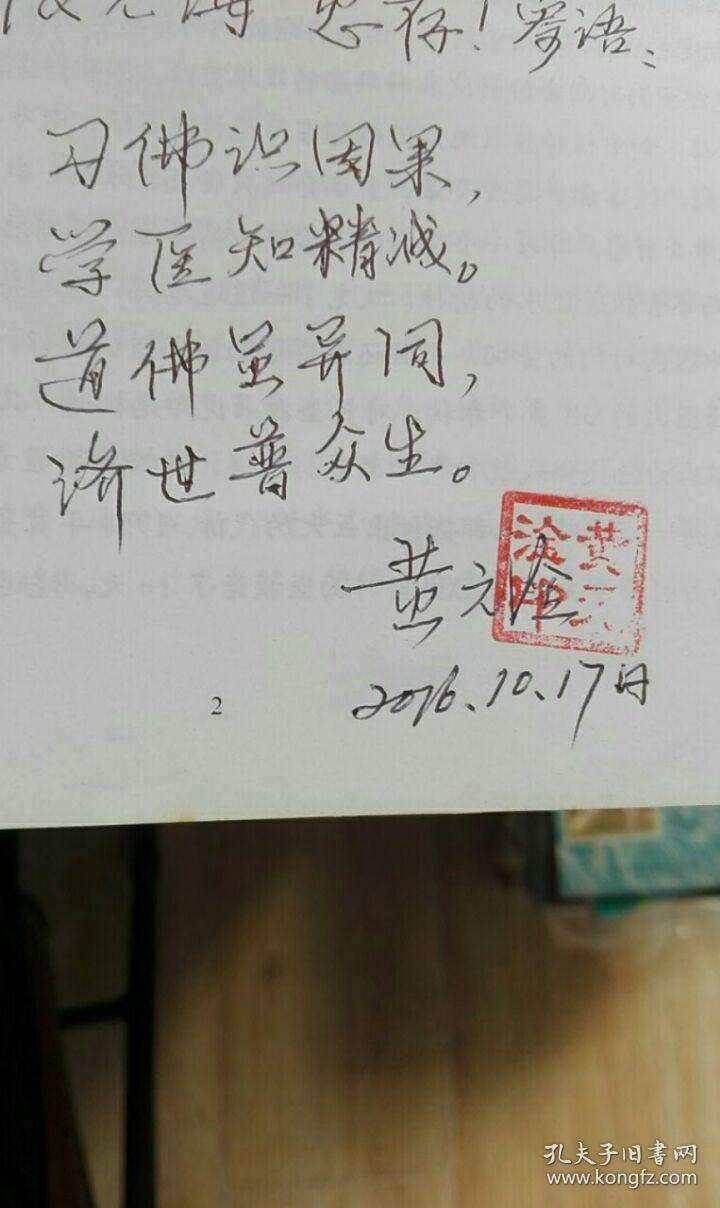 您好！寄语：
习佛识因果，
学医知精诚。
道佛虽异同，
济世普众生。
黄元淦
黄元淦印
2016.10.17日
2
孔夫子旧书网
www.kongfz.com